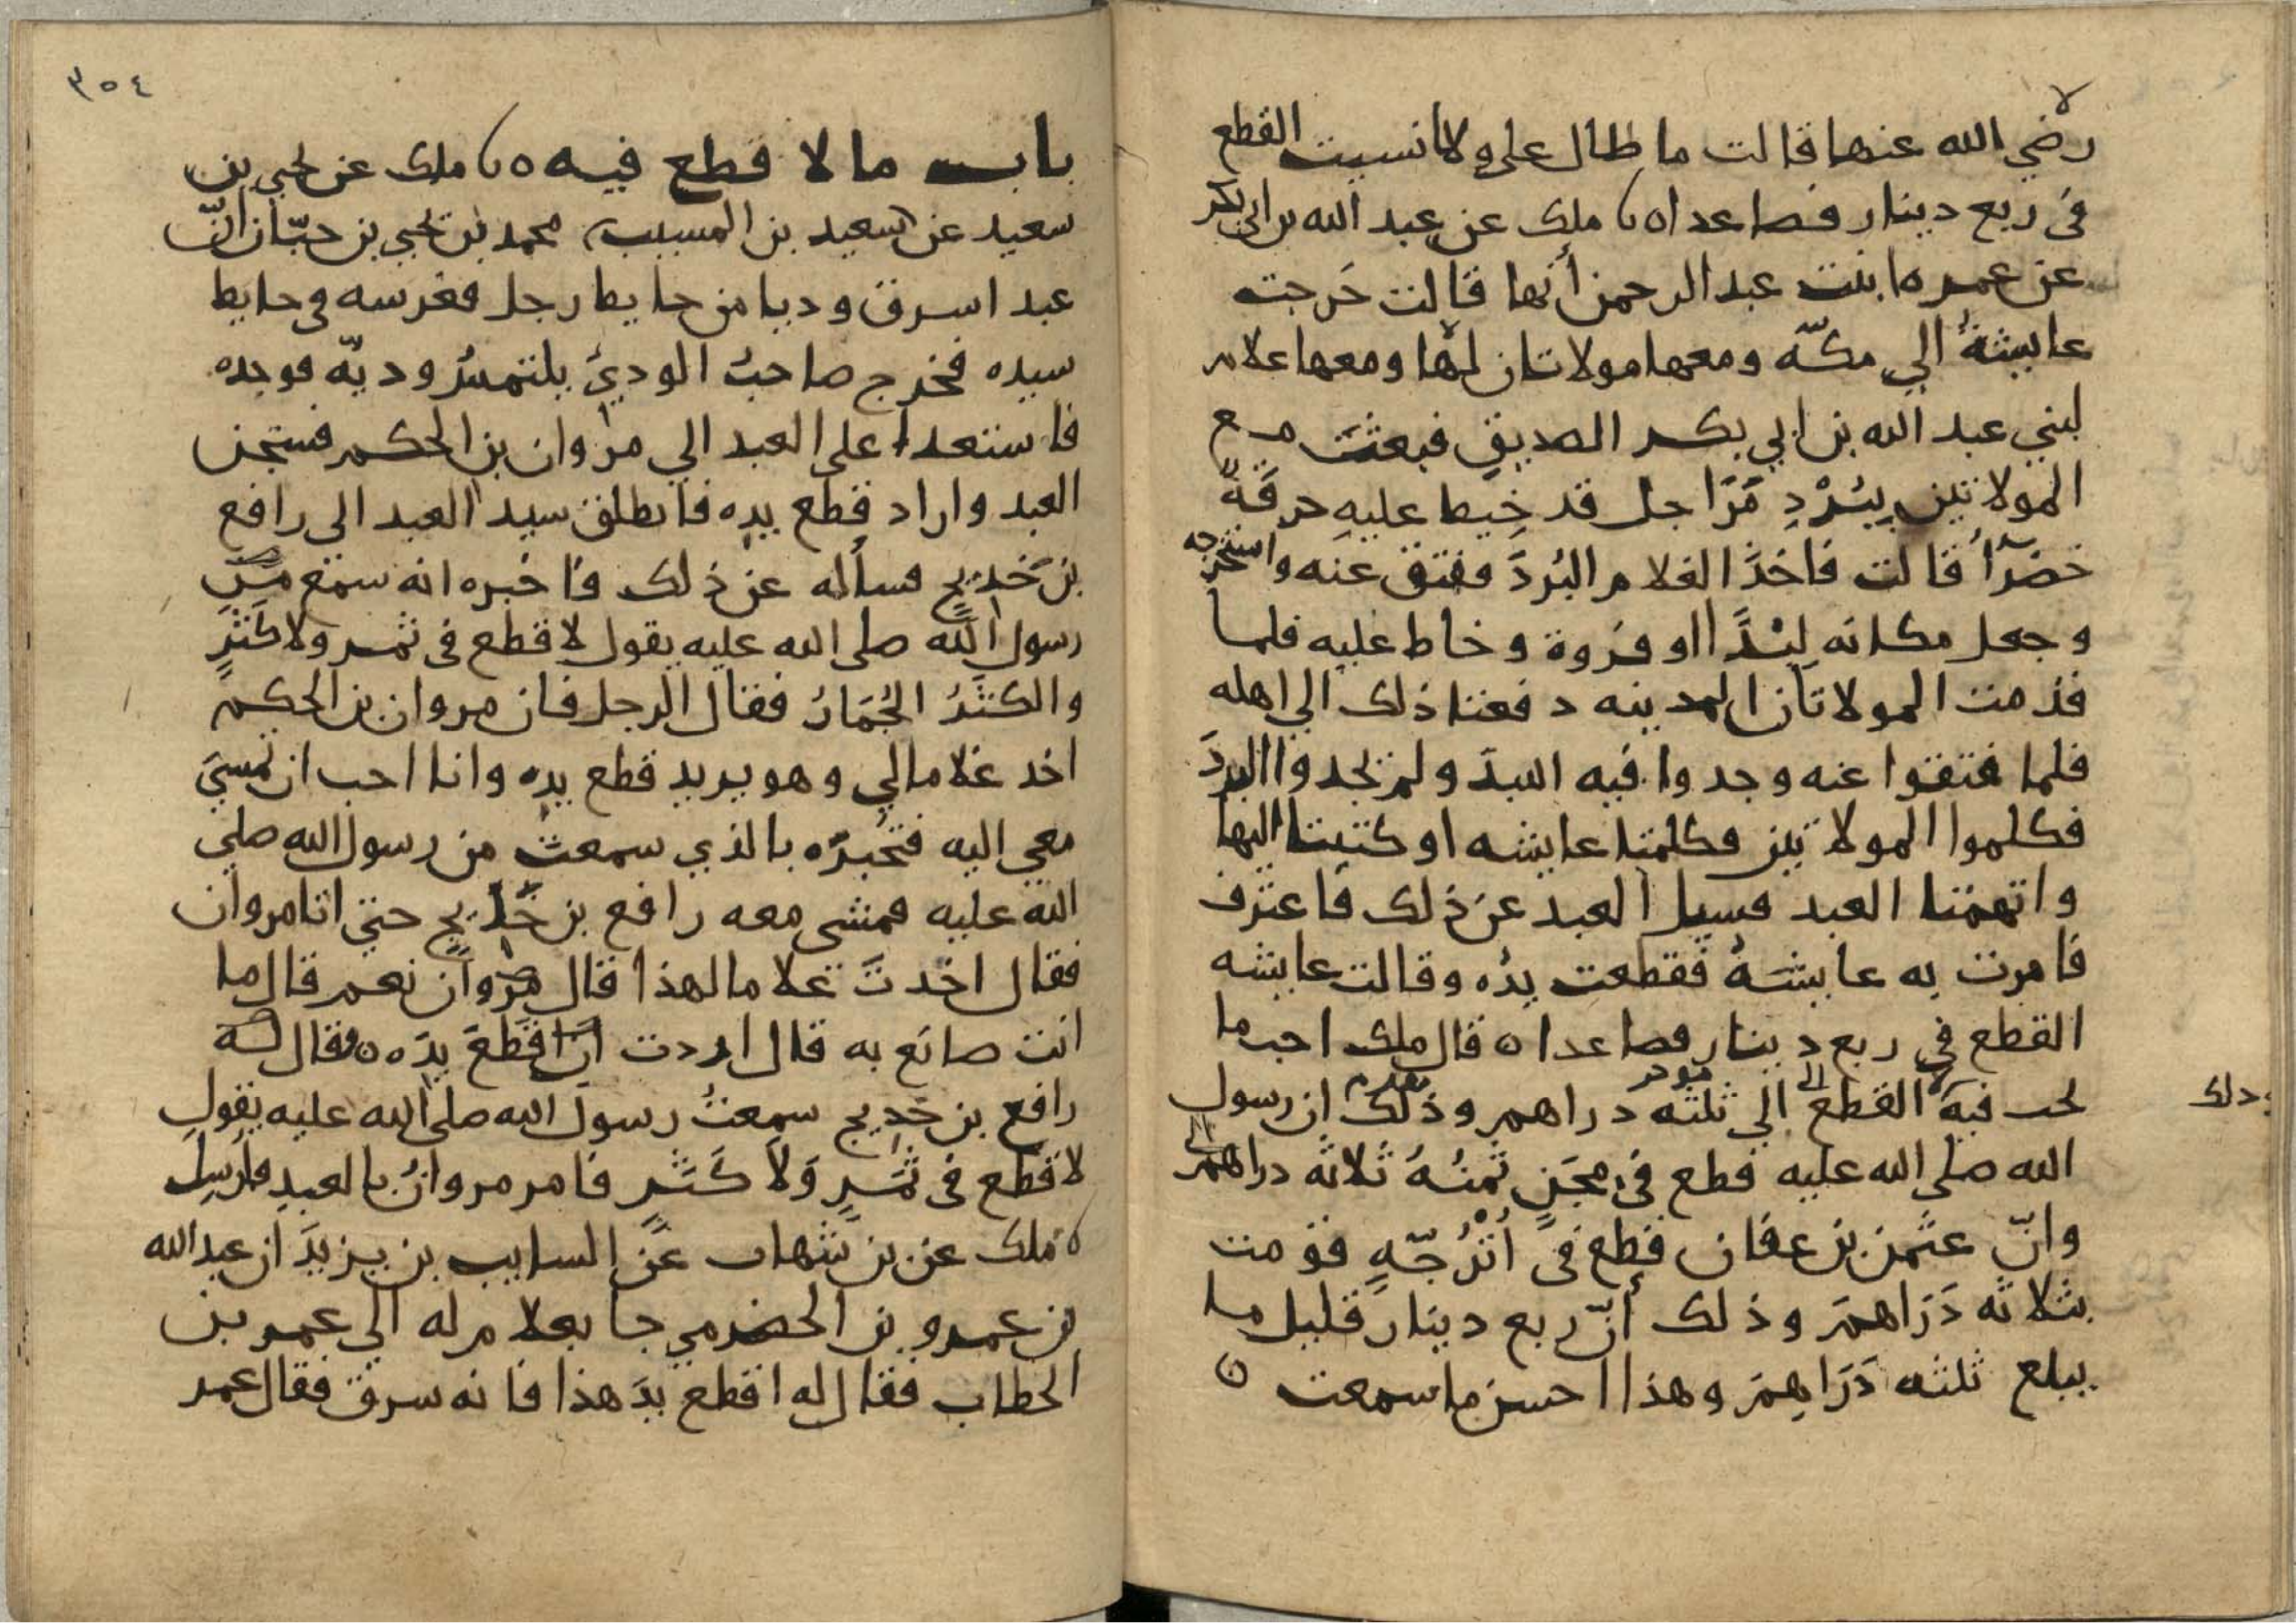 رضي الله عنها قالت ما طال علي ولا نسيت القطع
في ربع دينار فصاعدا ه ملك عن عبد الله بن ابي بكر
عن عمره ابنت عبد الرحمن أنها قالت خَرجت
عايشةُ الي مكّه ومعها مولاتان لها ومعها غلام
لبني عبد الله بن ابي بكر الصديق فبعثت مع
المولاتين بِبُرْدِ مَرَاجل قد خِيط عليهِ خرقَةٌ
خضرآُ قالت فاخذَ الغلام البُردَ ففتق عنه واستخرجه
وجعل مكانه لِبْدًا او فروة وخاط عليه فلما
قدمت المولاتان المدينه دفعتا ذلك الي اهله
فلما فتقوا عنه وجدوا فيه اللبدَ ولم يجدوا البردَ
فكلموا المولاتين فكلمتا عايشه او كتبتا اليها
واتهمتا العبد فسيل العبد عن ذلك فاعترف
فامرت به عايشةُ فقطعت يدُه وقالت عايشه
القطع في ربع دينار فصاعدا ه قال ملك احب ما
يجب فيه القطع الي ثلثه دراهم وذلك ان رسول
وذلك
الله صلى الله عليه قطع في مجَنٍ ثمنُهُ ثلاثه دراهم
وانّ عثمن بن عفان قطع في أُتْرُجّهٍ قومت
بثلاثه دَرَاهمَ وذلك أنّ ربع دينار قليل ما
يبلغ ثلثه دَرَاهِمَ وهذا احسن ما سمعت ه
٣٥٤
باب ما لا قطع فيه ه ملك عن يحيى بن
سعيد عن سعيد بن المسيب محمد بن يحيي بن حبّان انّ
عبدا سرق وديا من حايط رجل فغرسه في حايط
سيده فخرج صاحبُ الوديّ يلتمسُ وديّه فوجده
فاستعدا على العبد الي مروان بن الحكم فسجن
العبد واراد قطع يده فانطلق سيد العبد الى رافع
بن خَدِيجٍ فسأله عن ذلك فاخبره انه سمع من
رسول الله صلى الله عليه يقول لا قطع في ثمر ولا كَثَرٍ
والكثَرُ الجُمَارُ فقال الرجل فان مروان بن الحكم
اخذ غلاما لي وهو يريد قطع يده وانا احب ان تمسيَ
معي اليه فتخبرَه بالذي سمعتَ من رسول الله صلي
الله عليه فمشى معه رافع بن خَدِيجٍ حتي اتا مروان
فقال اخذتَ غلاما لهذا قال مروان نعم قال ما
انت صانع به قال اردت ان اقطعَ يدَه ه فقال له
رافع بن خَدِيج سمعتُ رسول الله صلى الله عليه يقول
لا قطع في ثمَرٍ وَلا كَثَرٍ فامر مروانُ بالعبدِ فأرسِل
ه ملك عن بن شهاب عَن السايب بن يزيدَ ان عبد الله
بن عمرو بن الحضرمي جا بغلام له الي عمر بن
الخطاب فقال له اقطع يدَ هذا فانه سرق فقال عمر